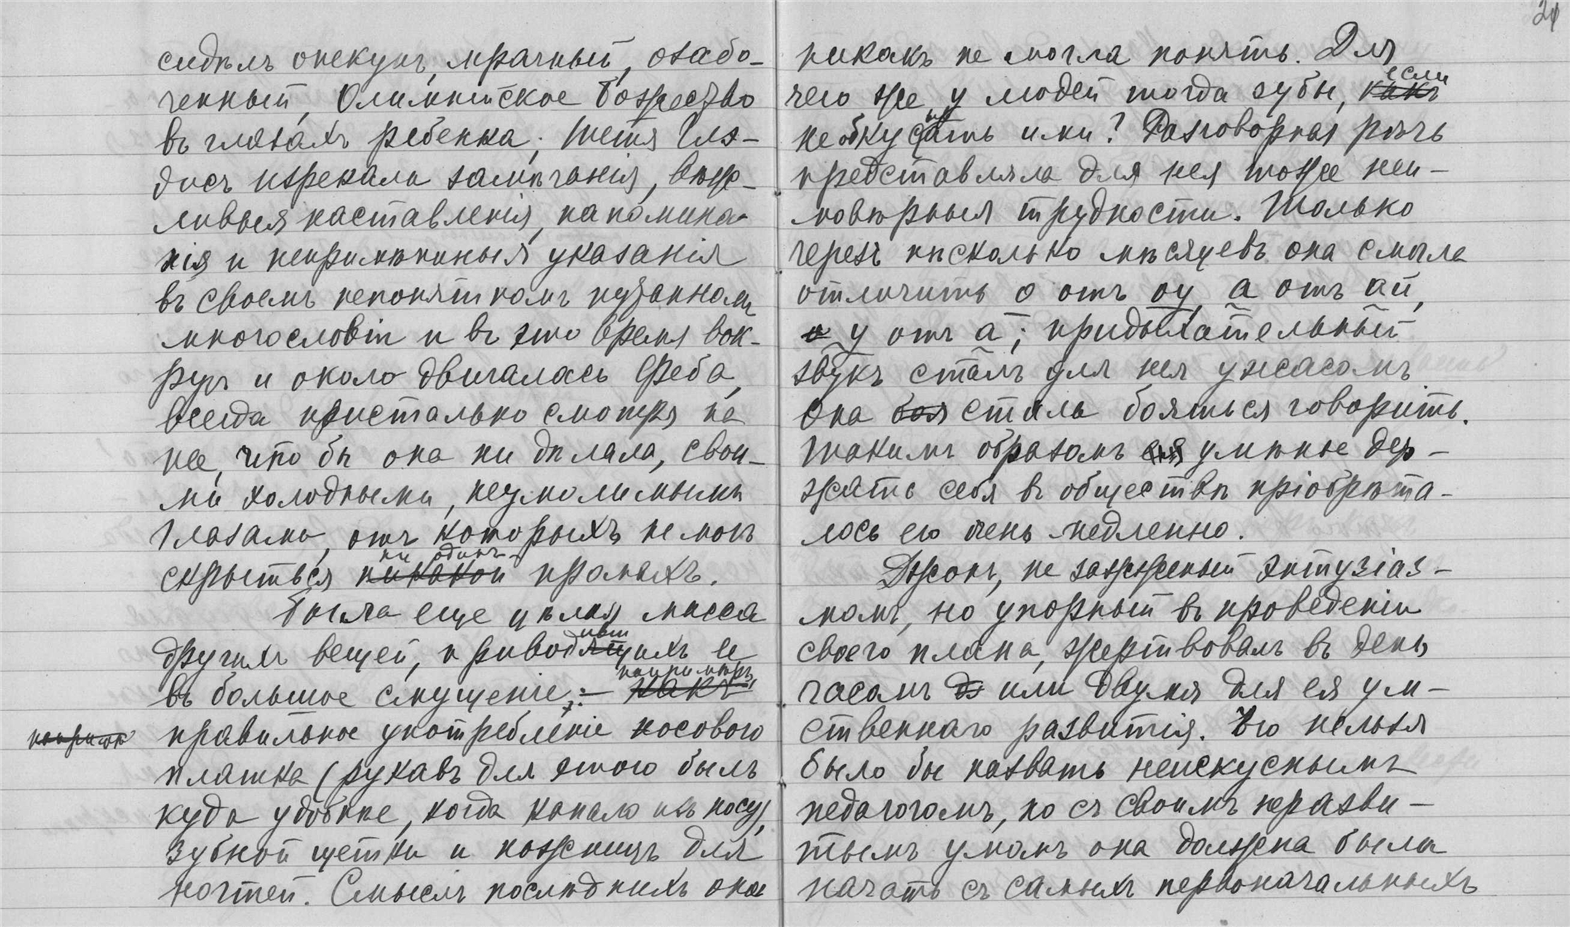 сидѣлъ опекунъ, мрачный, озабо-
ченный, Олимпійское божество
въ глазахъ ребенка; тетя Гля-
дисъ изрекала замѣчанія, вѣж-
ливыя наставленія, напомина-
нія и непримѣнимыя указанія
въ своемъ непонятномъ
многословіи и въ это время вок-
ругъ и около двигалась Феба,
всегда пристально смотря на
нее, что бы она ни дѣлала, свои-
ми холодными, неумолимыми
глазами, отъ которыхъ не могъ
ни одинъ
скрыться никакой промахъ.
Была еще цѣлая масса
другихъ вещей, приводящихъ ее
напримѣръ,
въ большое смущеніе: – какъ
правильное употребленіе носового
платка (рукавъ для этого былъ
куда удобнѣе, когда капало изъ носу),
зубной щетки и ножницъ для
ногтей. Смыслъ послѣднихъ она
21
никакъ не могла понять. Для
если
чего же у людей тогда зубы, какъ
не обкусать ими? Разговорная рѣчь
представляла для нея тоже неи-
мовѣрныя трудности. Только
черезъ нѣсколько мѣсяцевъ она смогла
отличить о отъ оу, а отъ ай,
у отъ а; придыхательный
звукъ сталъ для нея ужасомъ
Она боя стала бояться говорить.
Такимъ образомъ ея умѣнье дер-
жать себя въ обществѣ пріобрѣта-
лось ею очень медленно.
Джонъ, не зажженный энтузіаз-
момъ, но упорный въ проведеніи
своего плана, жертвовалъ въ день
часомъ или двумя для ея ум-
ственнаго развитія. Его нельзя
было бы назвать неискуснымъ
педагогомъ, но съ своимъ неразви-
тымъ умомъ она должна была
начать съ самыхъ первоначальныхъ